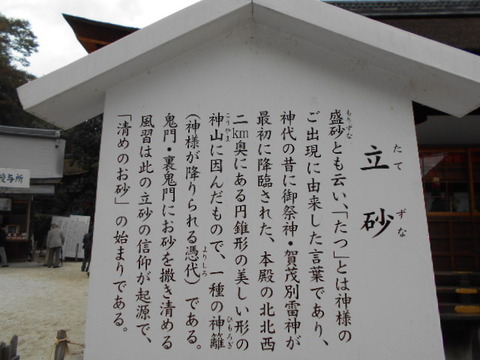 立砂
たてずな
盛砂とも云い、「たつ」とは神様の
もりずな
ご出現に由来した言葉であり、
神代の昔に御祭神・賀茂別雷神が
最初に降臨された、本殿の北北西
二km奥にある円錐形の美しい形の
神山に因んだもので、一種の神籬
こうやま
ひもろぎ
(神様が降りられる憑代)である。
よりしろ
鬼門・裏鬼門にお砂を撒き清める
風習は此の立砂の信仰が起源で、
「清めのお砂」の始まりである。
授与所